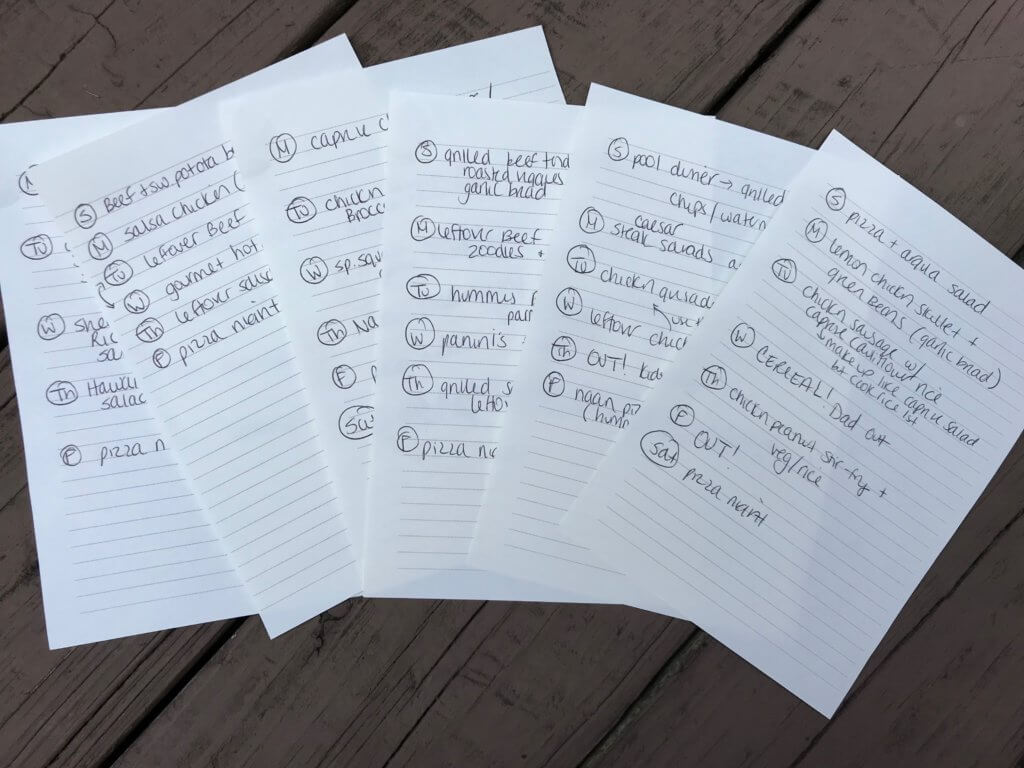 Tu
W she
Ric
sa
Th Hawai
salad
F pizza n
S Beef + sw. potato b
M salsa chicken (
Tu leftover Beef
W gourmet hot
Th leftover sals
F pizza night
M caprese c
Tu chicken
Brocc
W sp. squ
Th Na
F
Sat
S grilled beef tend
roasted veggies
garlic bread
M leftover Beef
zoodles +
Tu hummus p
W panini's
Th grilled s
leftov
F pizza nig
S pool dinner → grilled
chips/waterm
caesar
M steak salads a
Tu chicken quesad
W leftovr chick
Th OUT! kids
F naan pi
(humm
S pizza + arqua salad
M lemon chickn skillet +
green Beans (garlic bread)
Tu chickn sausage w/
caprese cauliflower rice
make up like caprese salad
bt cook rice 1st
W CEREAL! Dad out
Th chickn peanut stir-fry +
veg/rice
F OUT!
Sat pizza night